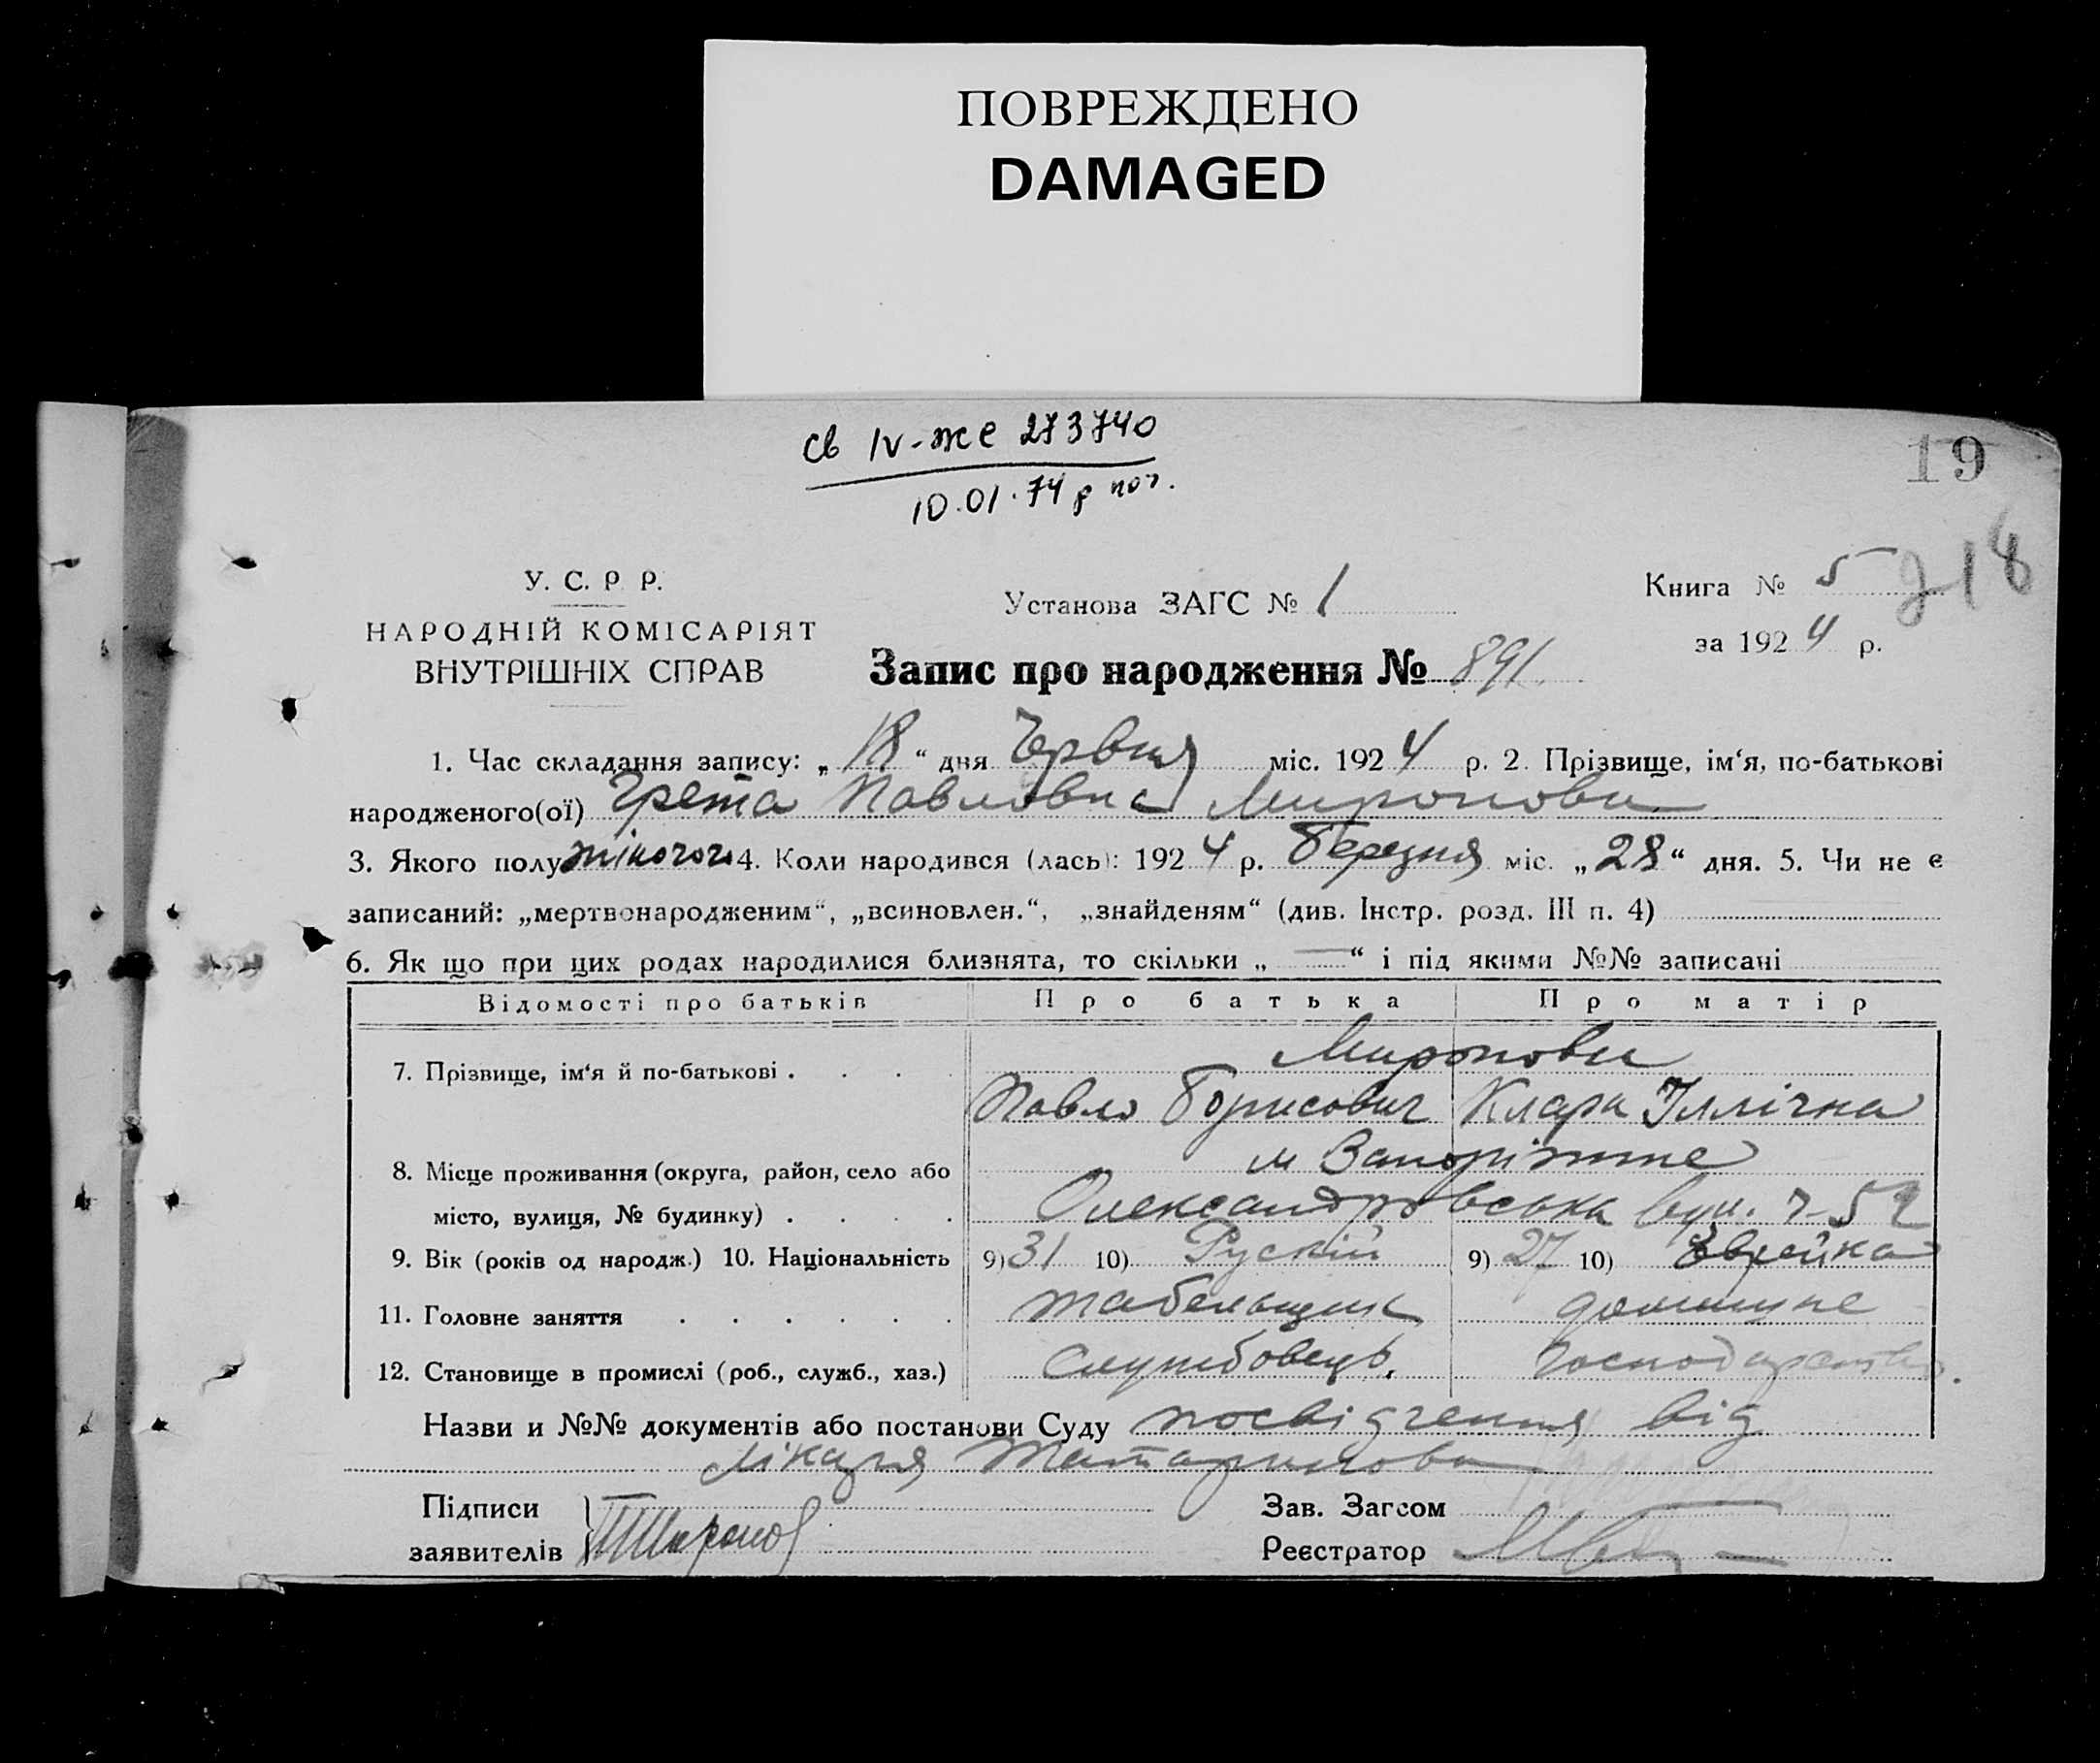 ПОВРЕЖДЕНО
DAMAGED
св IV-же 273740
10.01.74 р пот.
19
218
У. С. Р. Р.
НАРОДНІЙ КОМІСАРІЯТ
ВНУТРІШНІХ СПРАВ
Установа ЗАГС № 1
Книга № 5
за 1924 р.
Запис про народження № 891.
1. Час складання запису: „18“ дня Червня міс. 1924 р. 2. Прізвище, ім‘я, по-батькові
народженого(ої) Грета Павловна Миронова
3. Якого полу жіночого 4. Коли народився (лась): 1924 р. Березня міс. „28“ дня. 5. Чи не є
записаний: „мертвонародженим“, „всиновлен.“, „знайденям“ (див. Інстр. розд. III п. 4)
6. Як що при цих родах народилися близнята, то скільки „—“ і під якими №№ записані
Відомості про батьків Про батька Про матір
7. Прізвище, ім‘я й по-батькові . . . . Миронови
Павло Борисович Клара Іллічна
8. Місце проживання (округа, район, село або м Запоріжже
місто, вулиця, № будинку) . . . . Олександровська вул. 52
9. Вік (років од народж.) 10. Національність 9) 31 10) Рускій 9) 27 10) Єврейка
11. Головне заняття . . . . . . табельщик домашнє
12. Становище в промислі (роб., служб., хаз.) службовець. господарство.
Назви и №№ документів або постанови Суду посвідчення від
лікаря Татаринова
Підписи
заявителів ПМиронов
Зав. Загсом
Реєстратор